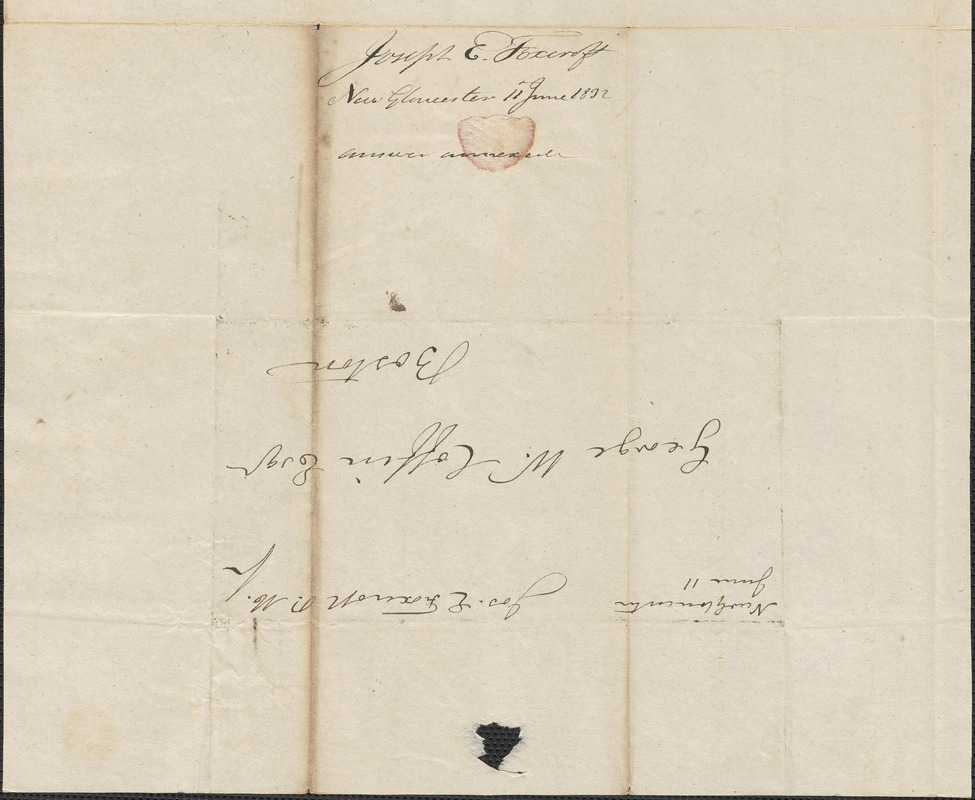 Joseph E. Foxcroft
New Gloucester 11 June 1832
answer annexed
New Gloucester
June 11
Jos. E Foxcroft P. M.
George W. Coffin Esqr
Boston